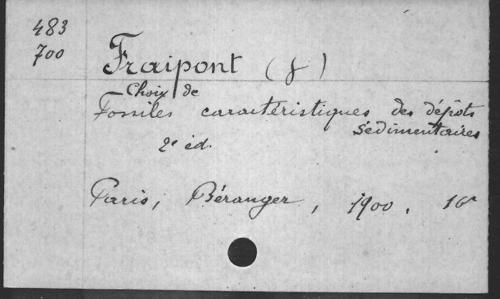 483
700
Fraipont (J)
Choix de
Fossiles caractéristiques des dépôts
sédimentaires
2e éd.
Paris, Béranger, 1900.